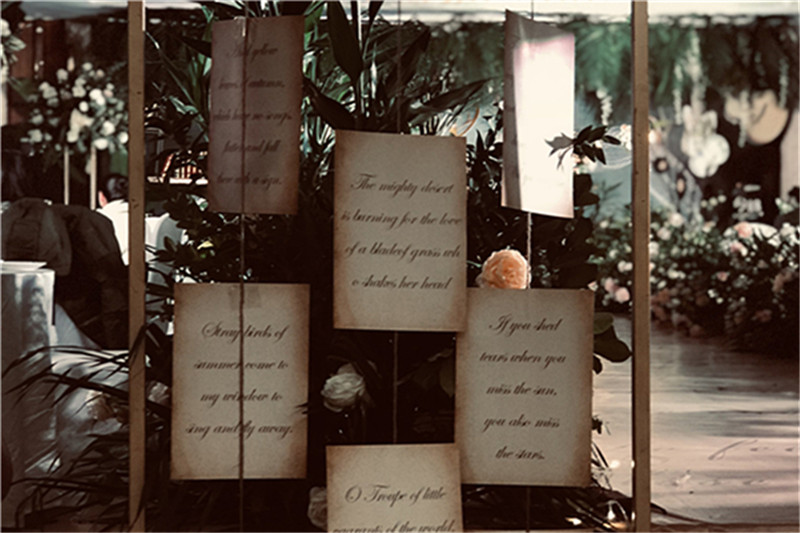 And yellow
leaves of autumn,
which have no songs,
flutter and fall
there with a sign.
The mighty desert
is burning for the love
of a bladeof grass wh
o shakes her head
Stray birds of
summer come to
my window to
sing and fly away.
If you shed
tears when you
miss the sun,
you also miss
the stars.
O Troupe of little
vagrants of the world,